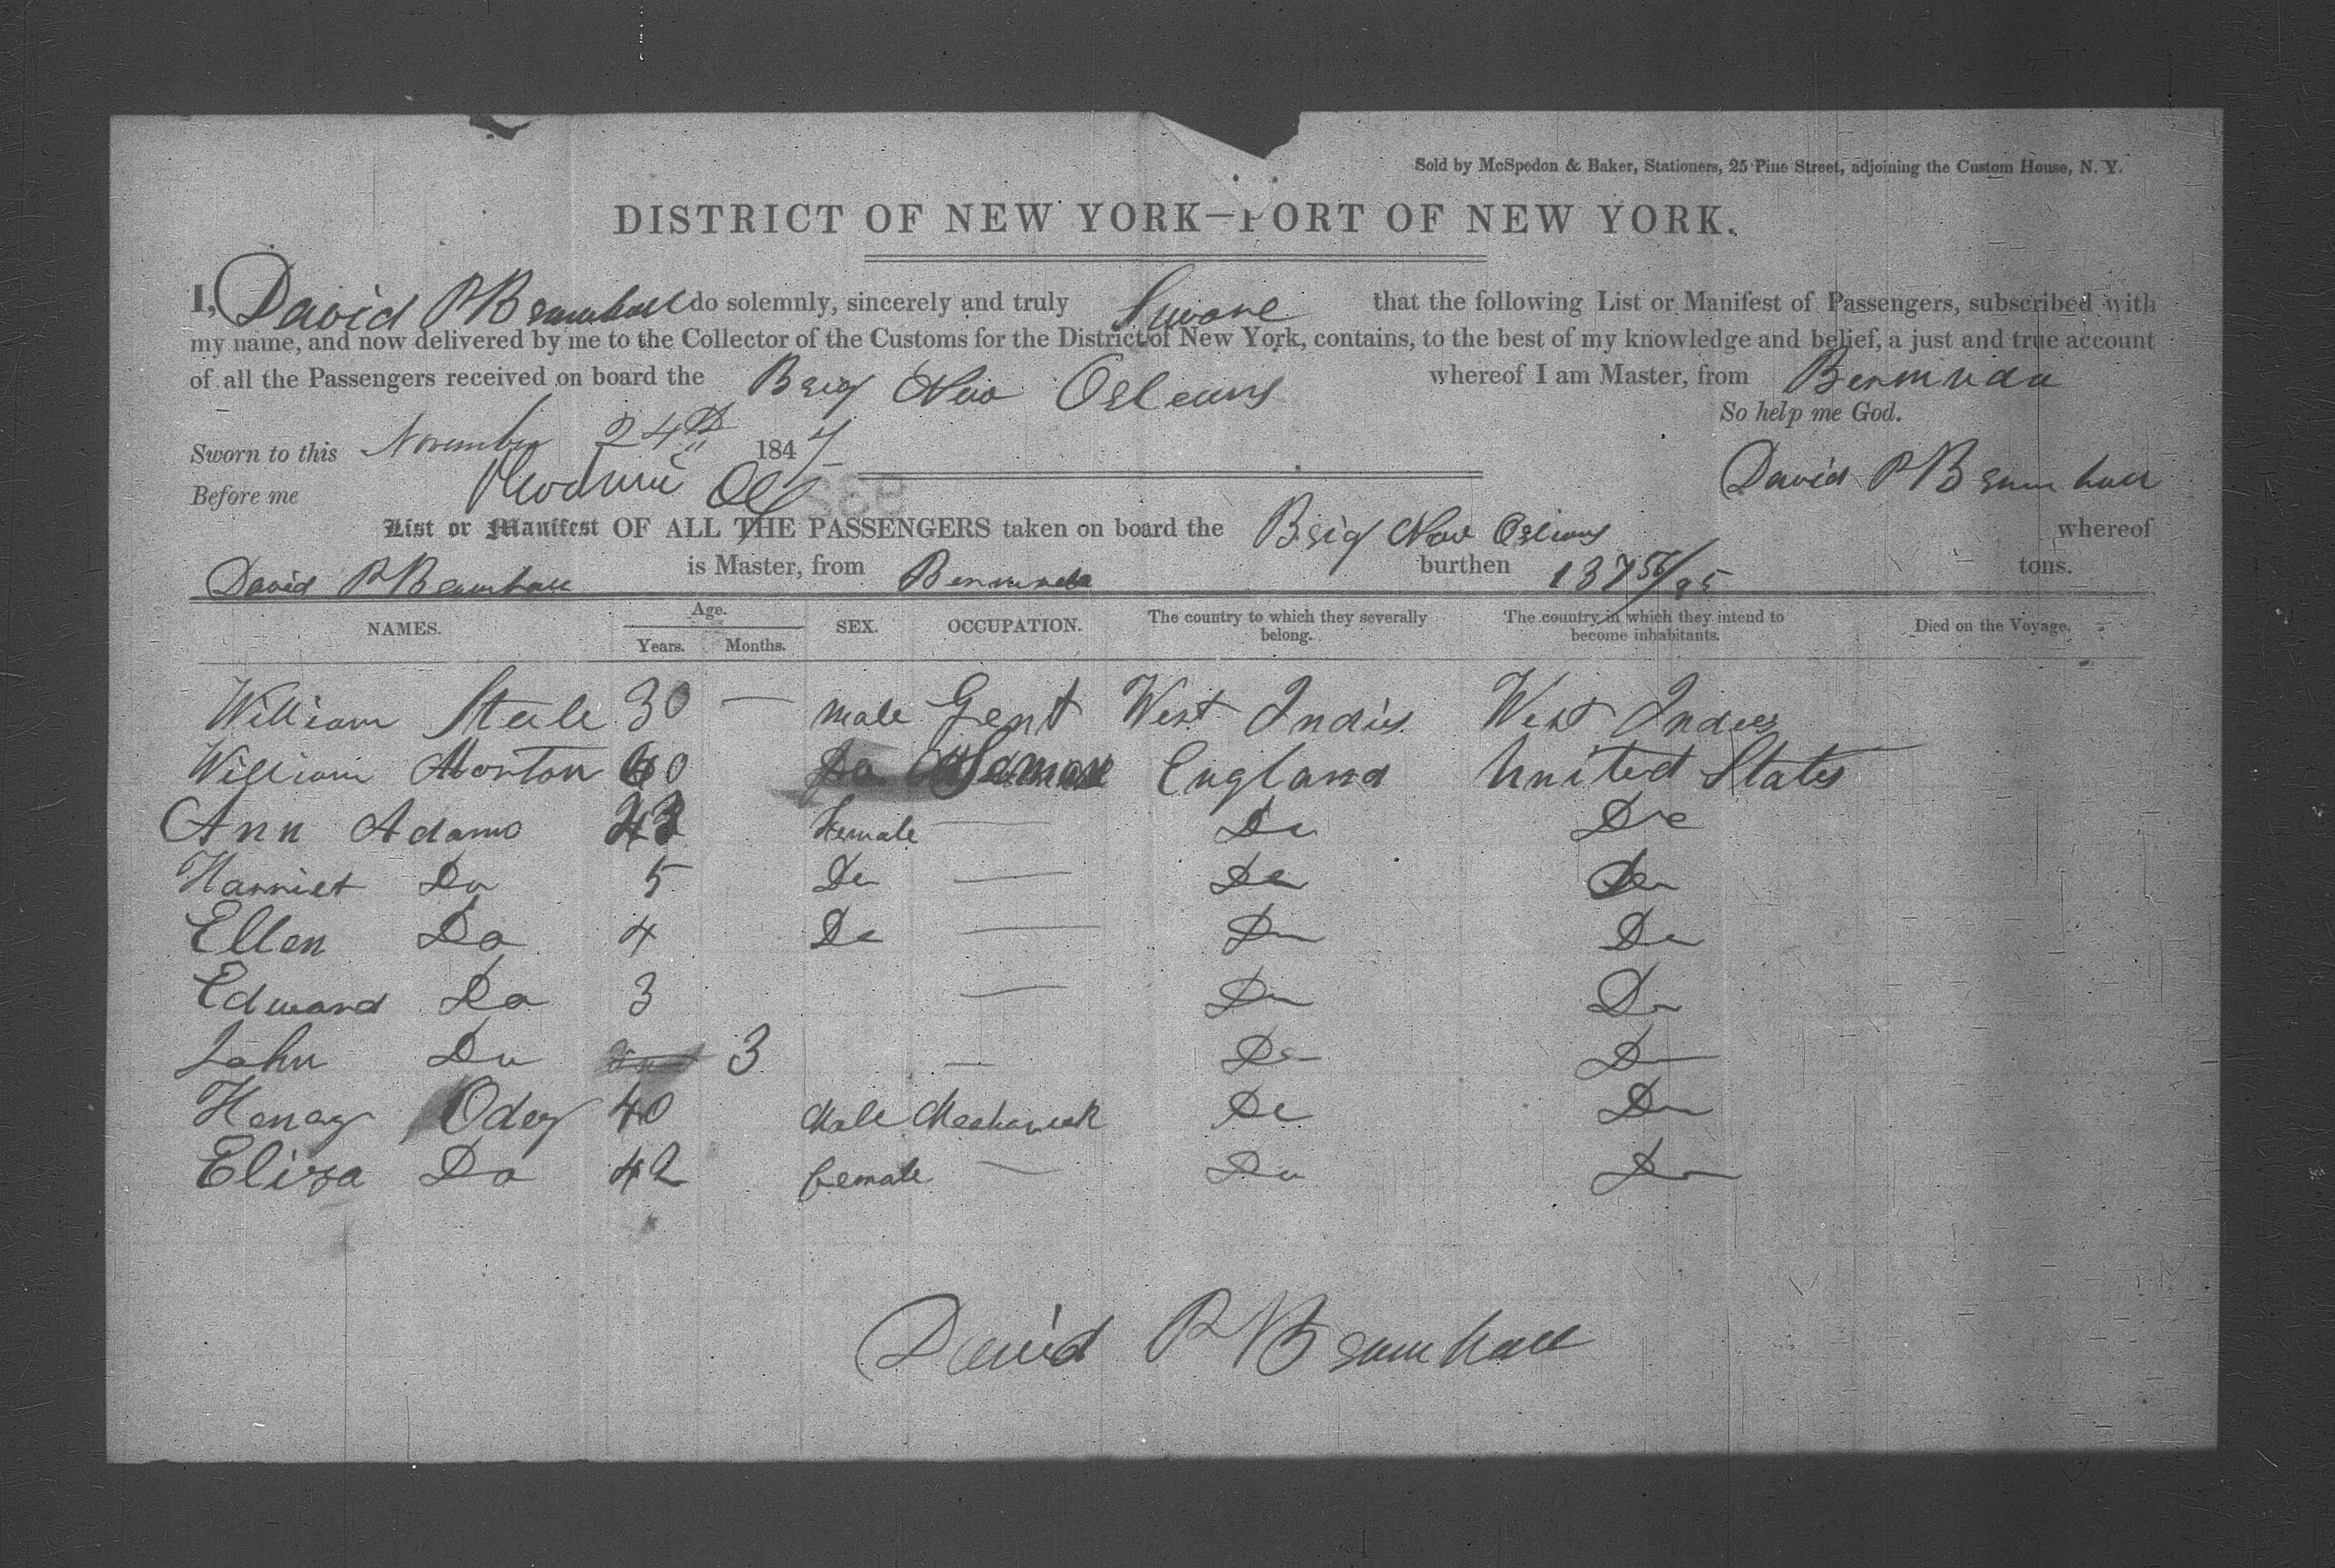 Sold by McSpedon & Baker, Stationers, 25 Pine Street, adjoining the Custom House, N. Y.
DISTRICT OF NEW YORK—PORT OF NEW YORK.
I, David P Bramhall do solemnly, sincerely and truly Swore that the following List or Manifest of Passengers, subscribed with
my name, and now delivered by me to the Collector of the Customs for the District of New York, contains, to the best of my knowledge and belief, a just and true account
of all the Passengers received on board the Brig New Orleans whereof I am Master, from Bermuda
So help me God.
Sworn to this November 24th 1847
Before me
David P Bramhall
List or Manifest OF ALL THE PASSENGERS taken on board the Brig New Orleans whereof
David P Bramhall is Master, from Bermuda burthen 137 56/95 tons.
NAMES. Age. Years. Months. SEX. OCCUPATION. The country to which they severally belong. The country in which they intend to become inhabitants. Died on the Voyage.
William Steele 30 — male Gent West Indis West Indies
William Morton 60 Do Seman England United States
Ann Adams 43 Female — Do Do
Harriet Do 5 Do — Do Do
Ellen Do 4 Do — Do Do
Edward Do 3 — Do Do
John Do 3 — Do Do
Henry Odey 40 Male Mechanick Do Do
Eliza Do 42 female — Do Do
David P Bramhall